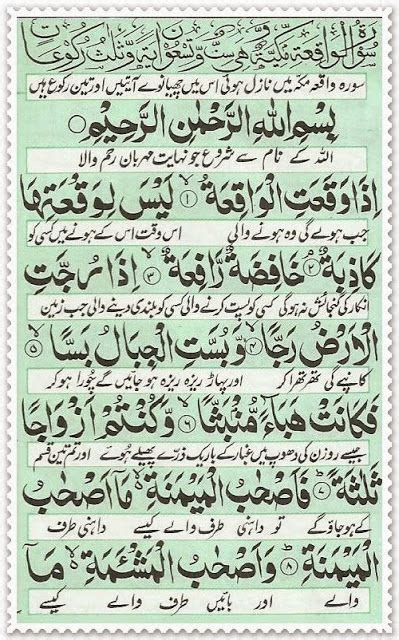 سُوْرَةُ الْوَاقِعَةِ مَكِّيَّةٌ وَّهِيَ سِتٌّ وَّتِسْعُوْنَ اٰيَةً وَّثَلٰثُ رُكُوْعَاتٍ
سورہ واقعہ مکہ میں نازل ہوئی اس میں چھیانوے آیتیں اور تین رکوع ہیں
بِسْمِ اللّٰهِ الرَّحْمٰنِ الرَّحِيْمِ ○
اللہ کے نام سے شروع جو نہایت مہربان رحم والا
اِذَا وَقَعَتِ الْوَاقِعَةُ ۙ﴿۱﴾ لَيْسَ لِوَقْعَتِهَا
جب ہولے گی وہ ہونے والی اس وقت اس کے ہونے میں کسی کو
كَاذِبَةٌ ۘ﴿۲﴾ خَافِضَةٌ رَّافِعَةٌ ۙ﴿۳﴾ اِذَا رُجَّتِ
انکار کی گنجائش نہ ہوگی کسی کو پست کرنے والی کسی کو بلندی دینے والی جب زمین
الْاَرْضُ رَجًّا ۙ﴿۴﴾ وَّبُسَّتِ الْجِبَالُ بَسًّا ۙ﴿۵﴾
کانپے گی تھرتھرا کر اور پہاڑ ریزہ ریزہ ہو جائیں گے چُورا ہو کر
فَكَانَتْ هَبَآءً مُّنْۢبَثًّا ۙ﴿۶﴾ وَّكُنْتُمْ اَزْوَاجًا
جیسے روزن کی دھوپ میں غبار کے باریک ذرّے پھیلے ہوئے اور تم تین قسم
ثَلٰثَةً ؕ﴿۷﴾ فَاَصْحٰبُ الْمَيْمَنَةِ ۙ مَاۤ اَصْحٰبُ
کے ہو جاؤ گے تو داہنی طرف والے کیسے داہنی طرف
الْمَيْمَنَةِ ؕ﴿۸﴾ وَاَصْحٰبُ الْمَشْـَٔمَةِ ۙ مَاۤ
والے اور بائیں طرف والے کیسے